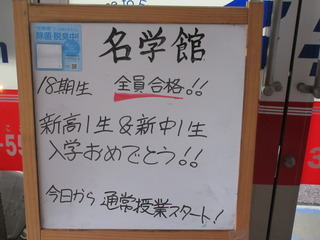 除菌・脱臭中!
名学館
18期生 全員合格!!
新高1生&新中1生
入学おめでとう!!
今日から 通常授業スタート!